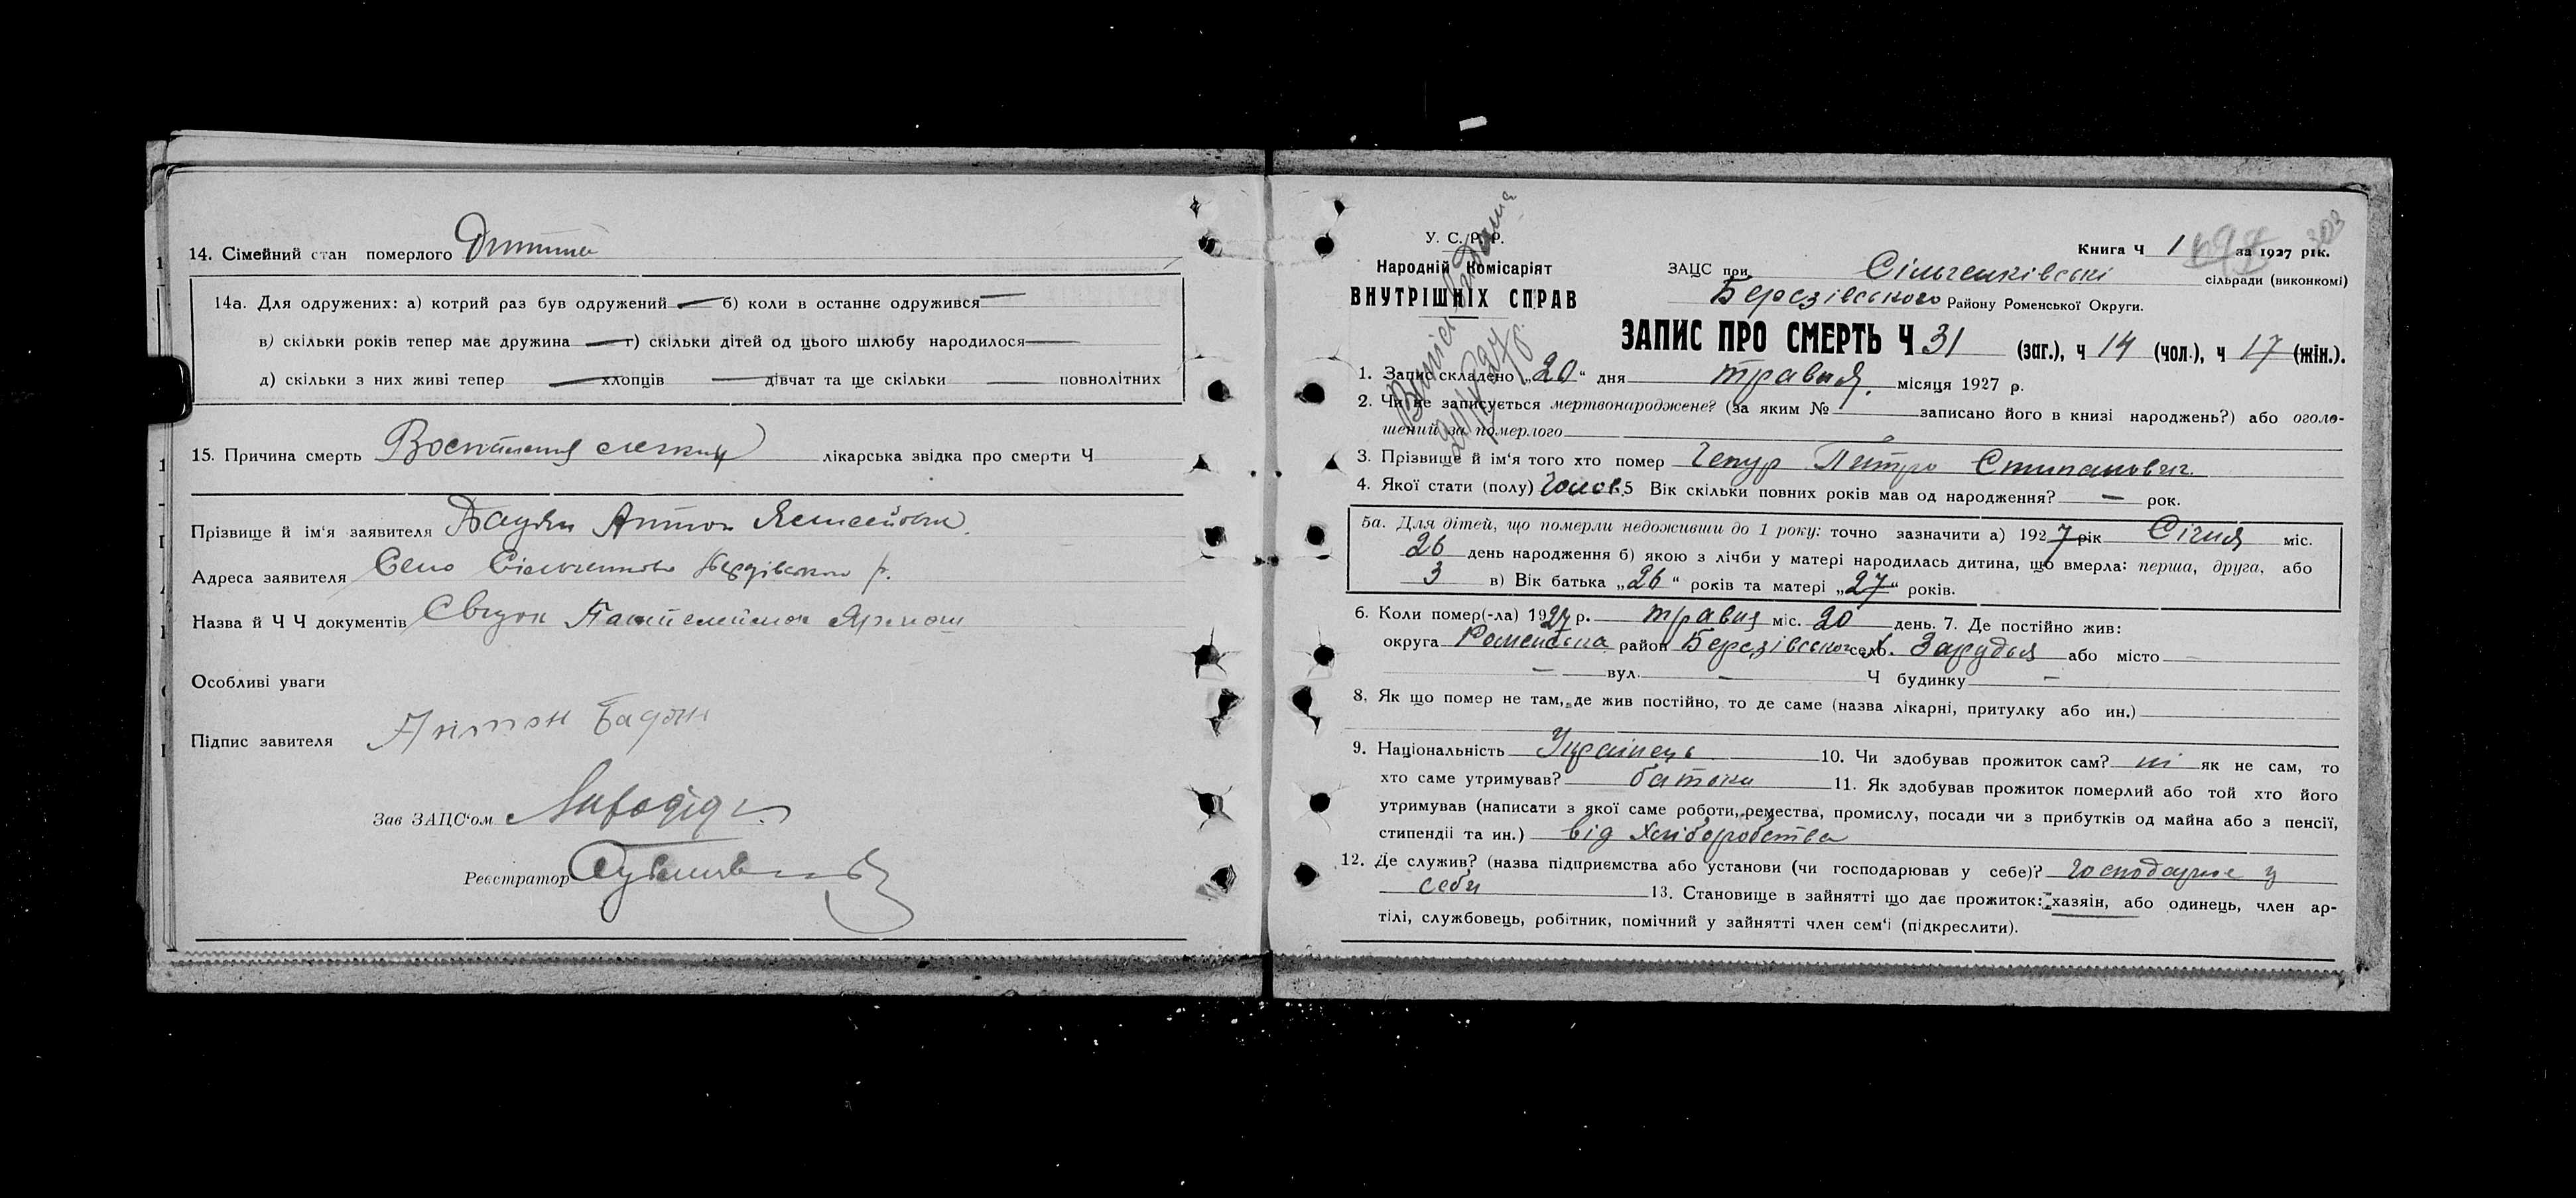 14. Сімейний стан померлого Дитина
14а. Для одружених: а) котрий раз був одружений — б) коли в останнє одружився —
в) скільки років тепер має дружина — г) скільки дітей од цього шлюбу народилося —
д) скільки з них живі тепер — хлопців — дівчат та ще скільки — повнолітних
15. Причина смерть Воспаления легких лікарська звідка про смерти Ч
Прізвище й ім'я заявителя Антон
Адреса заявителя Село р.
Назва й Ч Ч документів Свідок
Особливі уваги
Підпис завителя Антон
Зав ЗАЦС'ом
Реєстратор
У. С. Р. Р.
Народній Комісаріят
ВНУТРІШНІХ СПРАВ
Книга Ч 1 за 1927 рік. 303
ЗАЦС при Сільченківські сільради (виконкомі)
Березівського Району Роменської Округи.
ЗАПИС ПРО СМЕРТЬ Ч 31 (заг.), ч 14 (чол.), ч 17 (жін.).
1. Запис складено „20“ дня травня місяця 1927 р.
2. Чи не записується мертвонароджене? (за яким № записано його в книзі народжень?) або оголо-
шений за померлого
3. Прізвище й ім'я того хто помер Чепур Петро Степанович.
4. Якої стати (полу) Чолов. 5 Вік скільки повних років мав од народження? — рок.
5а. Для дітей, що померли недоживши до 1 року: точно зазначити а) 1927 рік Січня міс.
26 день народження б) якою з лічби у матері народилась дитина, що вмерла: перша, друга, або
3 в) Вік батька „26“ років та матері „27“ років.
6. Коли помер(-ла) 1927 р. травня міс. 20 день. 7. Де постійно жив:
округа Роменська район Березівського село. Зарудья або місто
— вул. — Ч будинку —
8. Як що помер не там, де жив постійно, то де саме (назва лікарні, притулку або ин.)
9. Національність Українець 10. Чи здобував прожиток сам? ні як не сам, то
хто саме утримував? батьки 11. Як здобував прожиток померлий або той хто його
утримував (написати з якої саме роботи, ремества, промислу, посади чи з прибутків од майна або з пенсії,
стипендії та ин.) від Хліборобства
12. Де служив? (назва підприємства або установи (чи господарював у себе)? господарює у
себя 13. Становище в зайнятті що дає прожиток: хазяін, або одинець, член ар-
тілі, службовець, робітник, помічний у зайнятті член сем'ї (підкреслити).